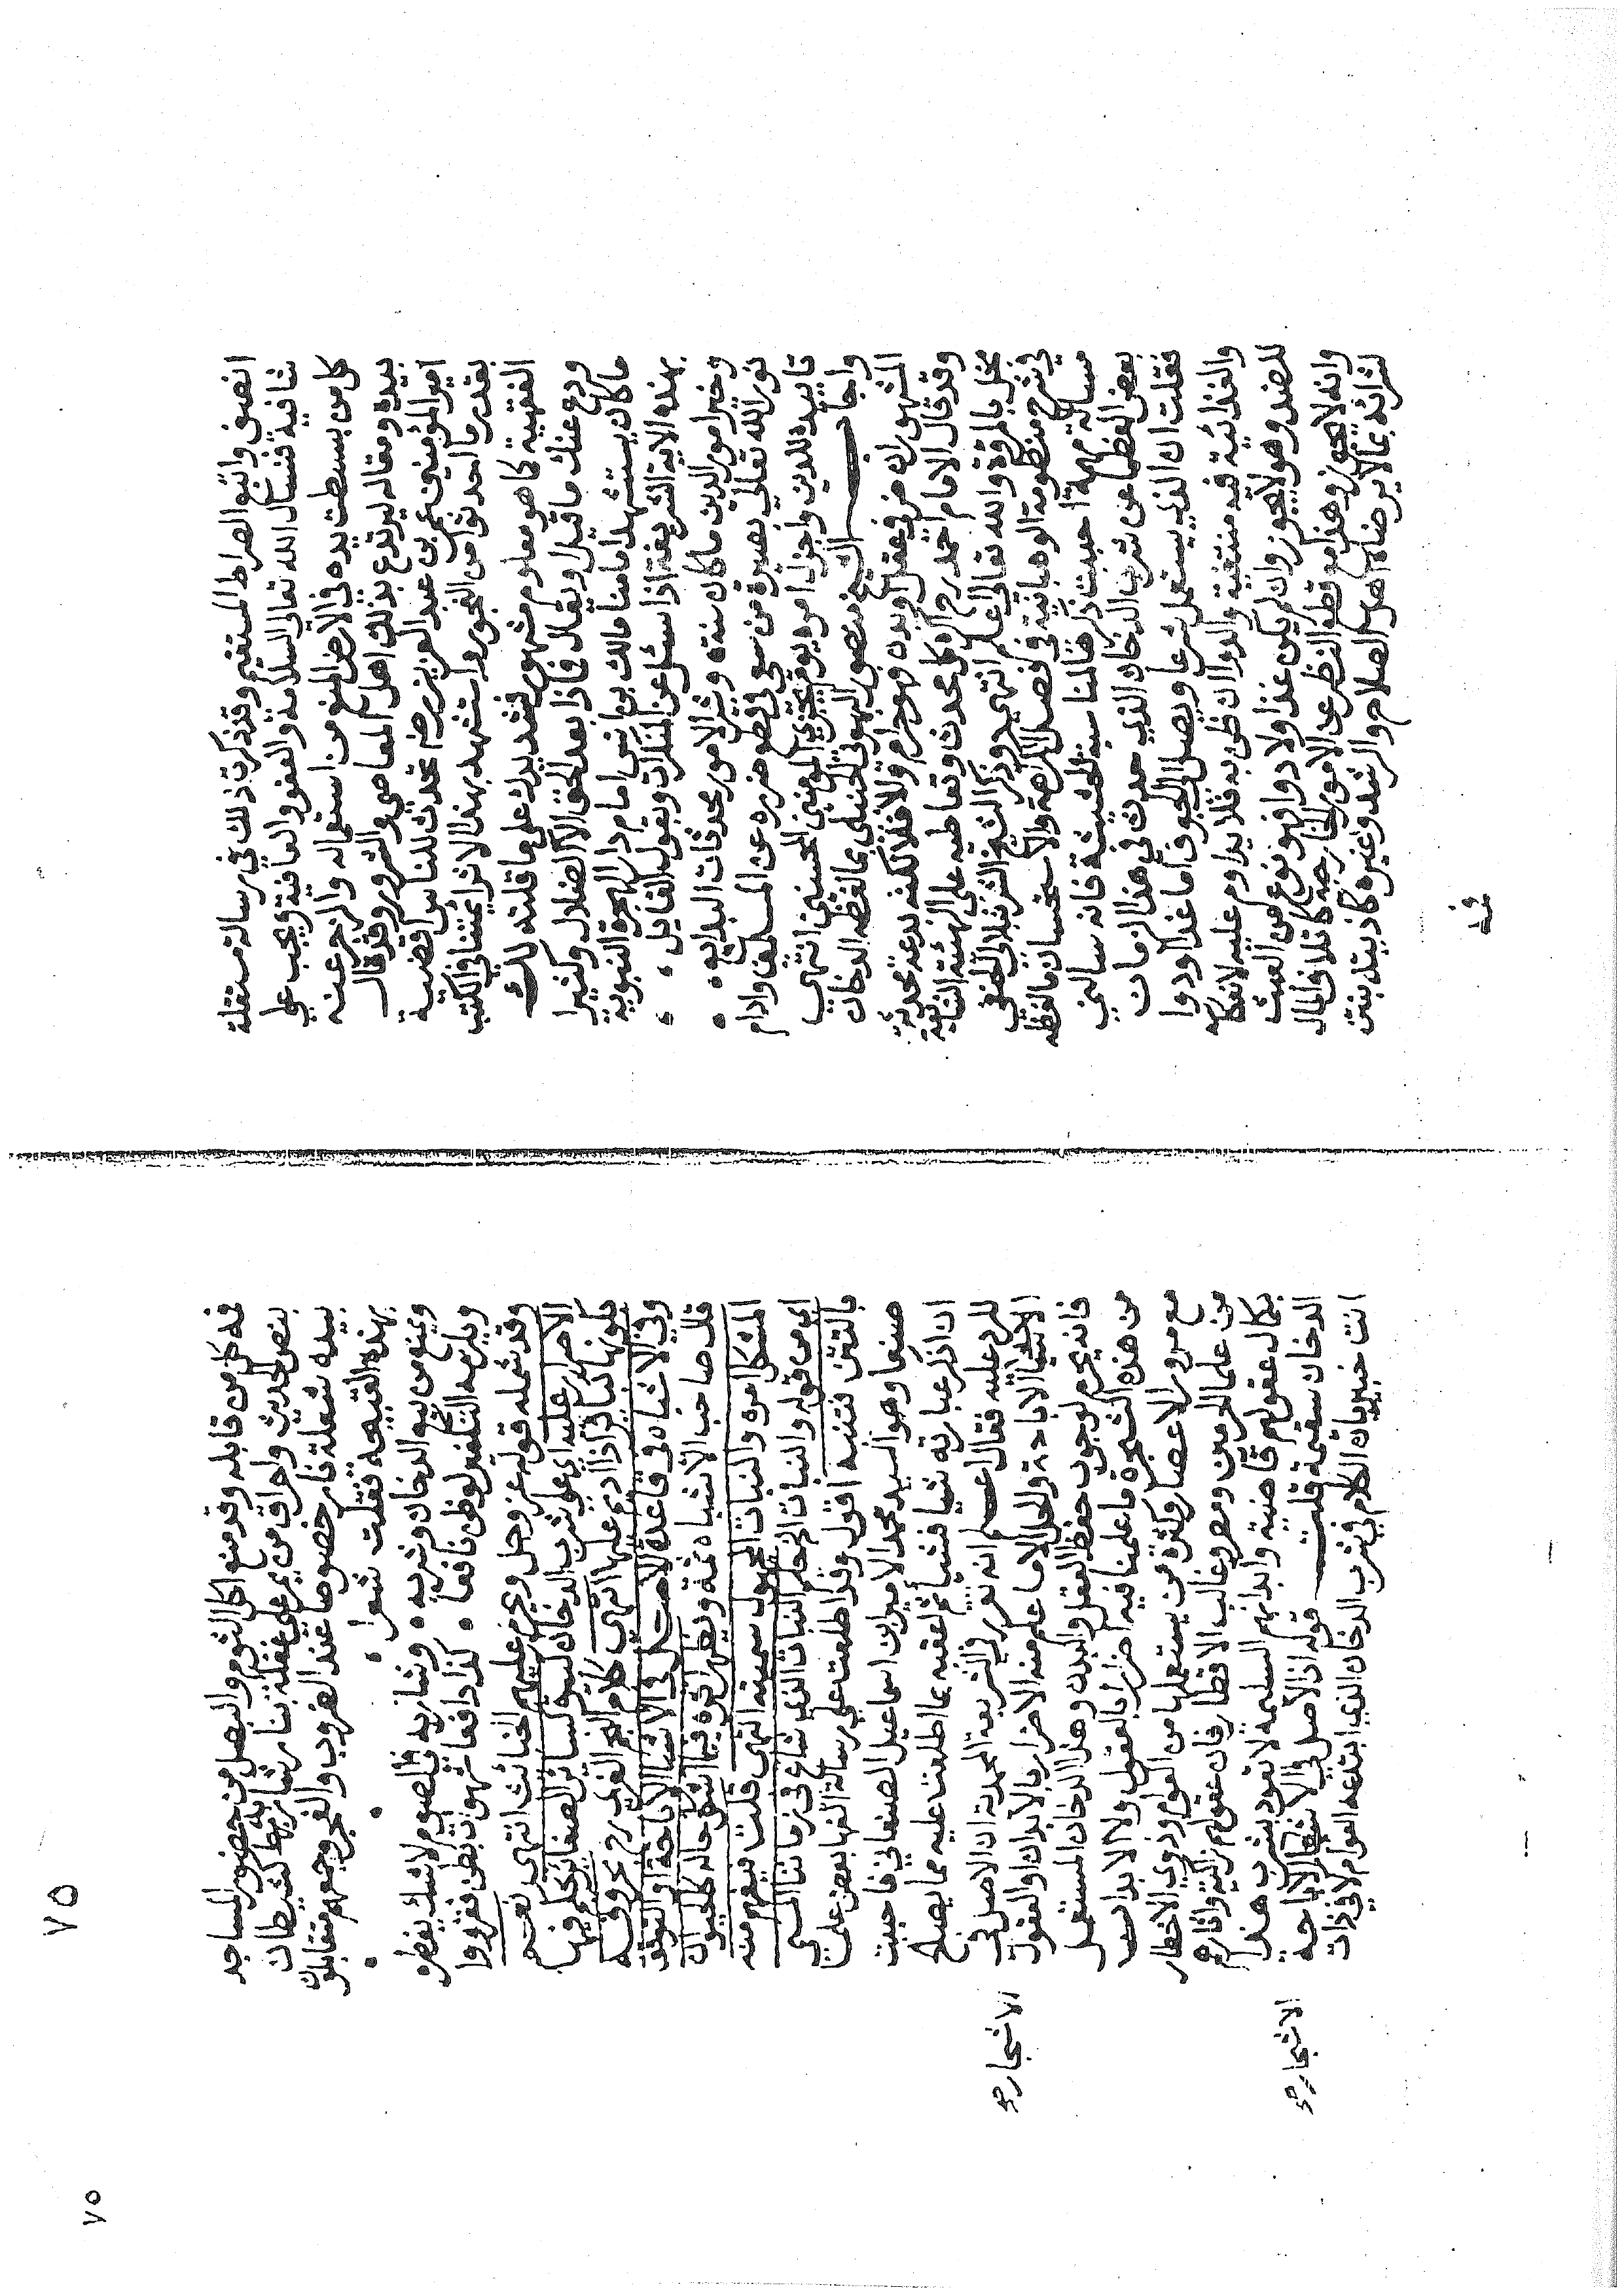 انصف واتبع الصراط المستقيم وقد ذكرت ذلك في رسالة مستقلة
شافية فنسال الله تعالى السلامة والعفو والعافية ويجب على
كل من بسطت يده في الارض المنع من استعماله والزجر عنه
بيده ومقاله ليرتدع بذلك اهل المعاصي والشرور وقد قال
امير المؤمنين عمر بن عبد العزيز رضه تحدث للناس اقضية
بقدر ما احدثوا من الفجور واستشهد بهذا الاثر ائمتنا في الكتب
الفقهية كما هو معلوم مشهور فشد يدك على ما قلته لك
ودع عنك ما قيل ويقال فماذا بعد الحق الا الضلال وكثيرا
ما كان يستشهد امامنا مالك بن انس امام دار الهجرة النبوية
بهذه الاية الشريفة اذا سئل عن المنكرات ويقول القايل
وخير امور الدين ما كان سنة وشر الامور المحدثات البدايع
نور الله تعالى بصيرة من سعى في قطع ضرره عن المسلمين وادام
تاييده للدين واجزل اجره يوم يجزى المؤمنين المحسنين انتهى
واجاب الشيخ منصور البهوتي الحنبلي بما لفظه الدخان
المشهور ان ضر في عقل او بدن فهو حرام والا فلا لكنه بدعة محدثة
وقد قال الامام احمد رح اكره كل محدث وتعاطيه على الهيئة الشايعة
مخل بالمروة والله تعالى اعلم انتهى وذكر الشيخ الشرنبلالي الحنفي
في شرح منظومة الوهبانية في فصل الكراهة والاستحسان ما لفظه
مسالة مهمة احببت ذكرها لمناسبة الحشيشة فانه سالني
بعض الفضلا عن شرب الدخان الذي حدث في هذا الزمان
فقلت ان الذي يستعمل شرعا ويصل الى الجوف اما غذا او دوا
والغذائية فيه منتفية والدوا ان ظن به فلا يداوم عليه
للضد وهو لا يجوز وان لم يكن غذا ولا دوا فهو نوع من العبث
وانه لا يجوز وهذا مع قطع النظر عن الامور الخارجية كاتلاف المال
لشرائه بما لا يرضاه اهل الصلاح والرشد وغيره كاذيته بنتن
فمه
٧٥
فمه كل من قابله وقد منع اكل الثوم والبصل من حضور المساجد
بنص الحديث واحراق من يمر على غفلة بنار شاربها لشيطان
بيده شعلة نار خصوصا عند الغروب والفجر وجمعهم متقابلون
بهذه القبيحة فقلت شعرا
ويمنع من بيع الدخان وشربه وشاربه في الصوم لا شك يفطر
ويلزمه التكفير لو ظن نافعا كذا دافعا شهوات بطن فقرروا
وقد شمله قوله عز وجل ويحرم عليهم الخبائث انتهى نعم
الاضرار عليه اي على شرب الدخان ليس لسائر الصغائر يحكم فيها
ملونها لنا اذا ادى عليها انتهى كلام النجم الغزي رح بحروفه
وفي الاشباه في قاعدة الاصل في الاشيا الاباحة او التوقف
قال صاحب الاشباه ثمة ويظهر اثره فيما اشكل حاله كالحيوان
المشكل امره والنبات المجهول سميته انتهى قلت فيفهم منه
اي من قوله والنبات الخ حكم النبات الذي شاع في زماننا المسمى
بالتتن فتنبه اقول وقد اطلعت على رسالة الفها بعض علما
صنعا وهو السيد محمد الامير ابن اسماعيل الصنعاني فاحببت
ان اذكر عبارته شيا فشيا ثم اعقبه بما اطلعت عليه مما يصلح
للرد عليه فقال اعلم انه تقرر في الشريعة المحمدية ان الاصل في
الاشيا الاباحة والحل الا ما علم منه الاضرار بالابدان او العقول
الاشجار صح
فانه يحرم لوجوب حفظ العقل والبدن وهذا الدخان المستعمل
من هذه الشجرة ما علمنا فيه اضرارا بالعقول ولا الابدان
مع مرور الاعصار وكثرة من يستعملها من العوام وذوي الاخطار
من علما الحرمين ومصر وغالب الاقطار فان عقولهم زاكية وافكارهم
بكمال عقولهم قاضية وابدانهم السليمة لا تعود بشرب هذا
الدخان سقيمة قلت قوله اذ الاصل في الاشيا الاباحة
الاشجار صح
انت خبير بان الكلام في شرب الدخان الذي ابتدعه العوام لا في ذات
٧٥